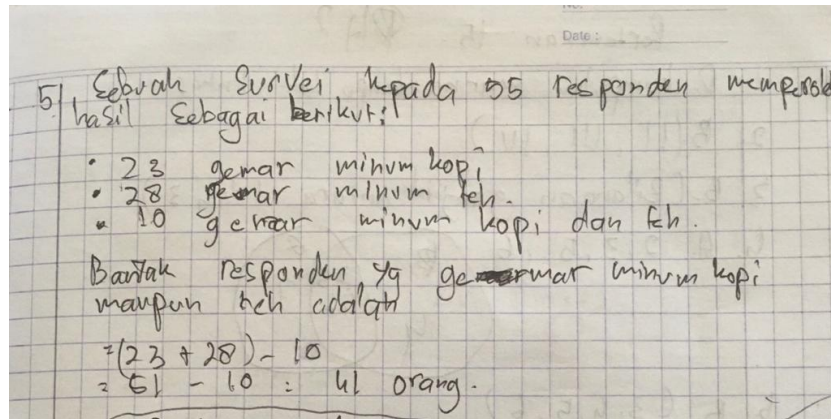 Date :
5) Sebuah Survei kepada 55 responden memperole
hasil Sebagai berikut:
• 23 gemar minum kopi
• 28 gemar minum teh.
• 10 gemar minum kopi dan teh.
Banyak responden yg gemar minum kopi
maupun teh adalah
= (23 + 28) - 10
= 51 - 10 = 41 orang.